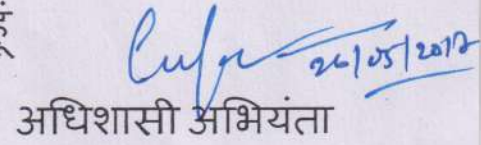 26/05/2017
अधिशासी अभियंता